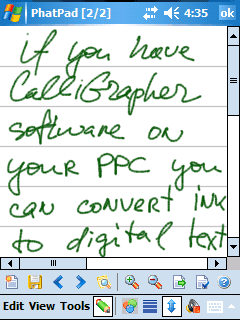 PhatPad [2/2] 4:35 ok
if you have
CalliGrapher
software on
your PPC you
can convert ink
to digital text
Edit View Tools